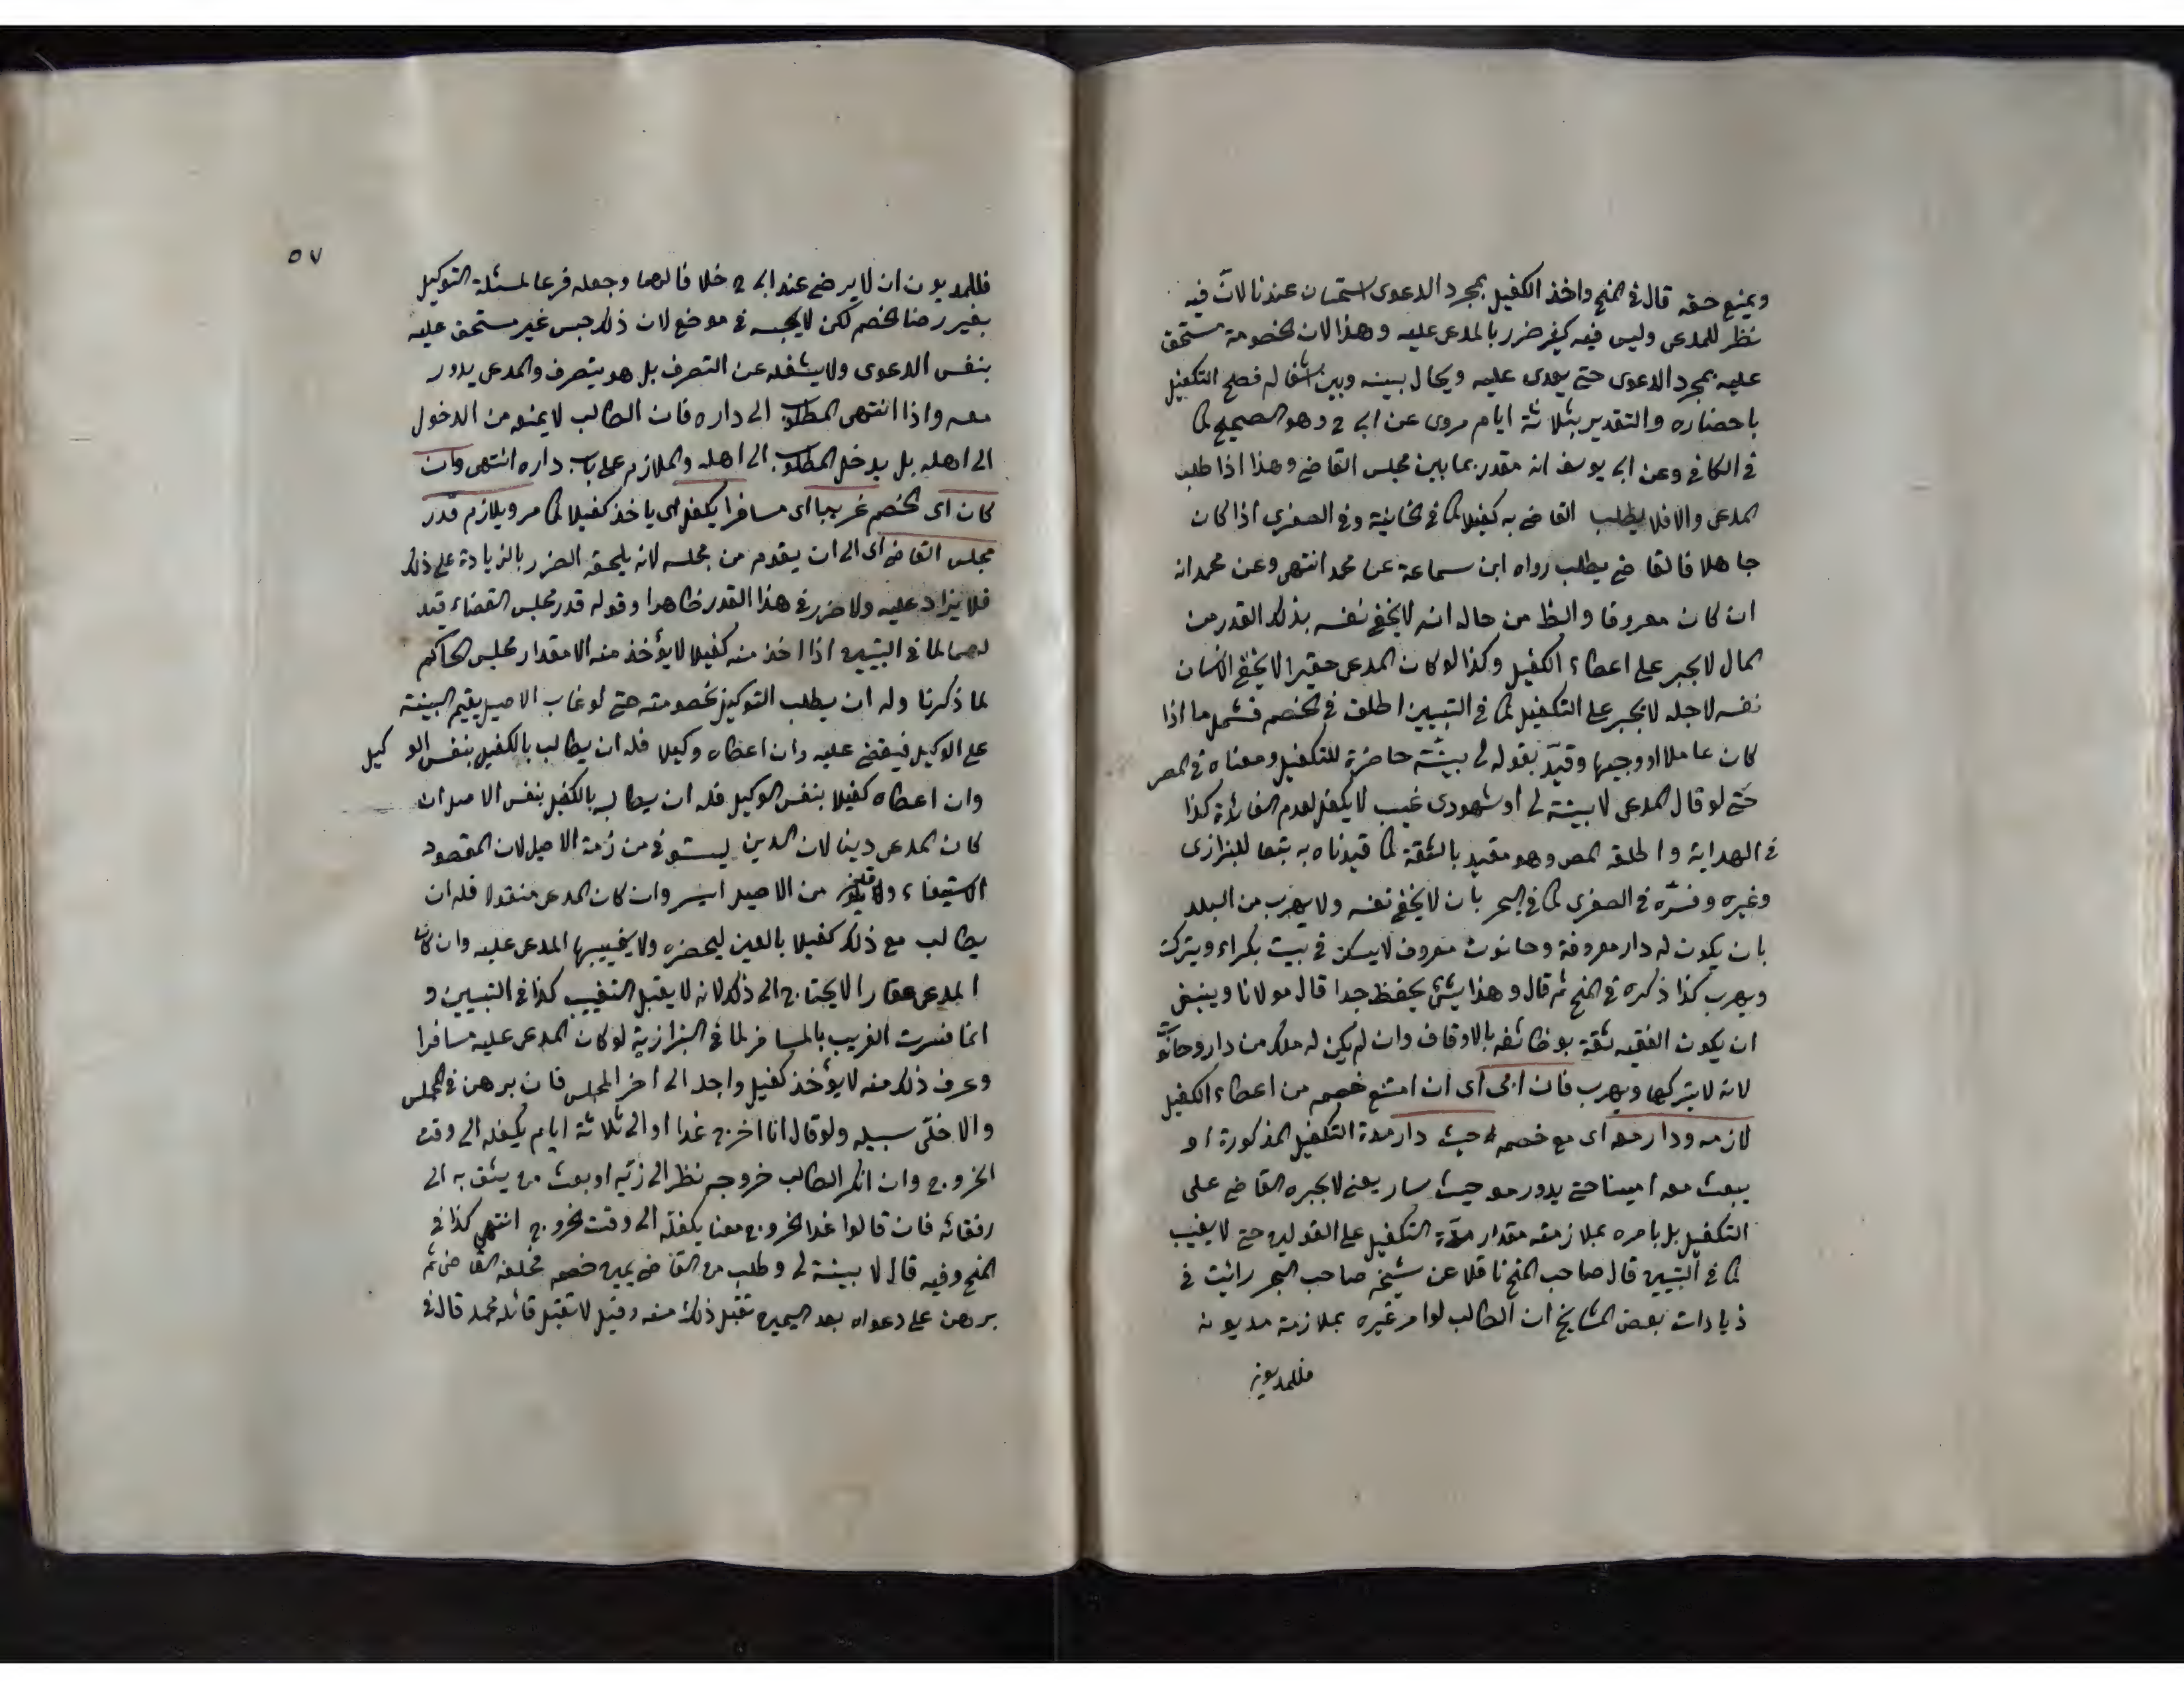 ويمنع حقه قال في المنح واخذ الكفيل بمجرد الدعوى استحسان عندنا لانّ فيه
نظر للمدعى وليس فيه كثير ضرر بالمدعى عليه وهذا لان الخصومة مستحق
عليه بمجرد الدعوى حتى يعدى عليه ويحال بينه وبين اشغاله فصح التكفيل
باحضاره والتقدير بثلاثة ايام مروى عن ابى ح وهو الصحيح كما
في الكافي وعن ابى يوسف انه مقدر بما بين مجلس القاضى وهذا اذا طلب
المدعى والا فلا يطلب القاضى به كفيلا كما في الخانية وفي الصغرى اذا كان
جاهلا فالقاضى يطلب رواه ابن سماعة عن محمد انتهى وعن محمد انه
ان كان معروفا والظ من حاله انه لا يخفى نفسه بذلك القدر من
المال لا يجبر على اعطاء الكفيل وكذا لو كان المدعى حقيرا لا يخفى الانسان
نفسه لاجله لا يجبر على التكفيل كما في التبيين اطلق في الخصم فشمل ما اذا
كان عاملا او وجيها وقيّد بقوله لى بيّنة حاضرة للتكفيل ومعناه في المصر
حتى لو قال المدعى لا بينة لى او شهودى غيب لا يكفل لعدم الفائدة كذا
في الهداية واطلقه المص وهو مقيد بالثقة كما قيدناه به تبعا للبزازى
وغيره وفسّره في الصغرى كما في البحر بان لا يخفى نفسه ولا يهرب من البلد
بان يكون له دار معروفة وحانوت معروف لا يسكن في بيت بكراء ويتركه
ويهرب كذا ذكره في المنح ثم قال وهذا شئ يحفظ جدا قال مولانا وينبغى
ان يكون الفقيه ثقة بوظائفه بالاوقاف وان لم يكن له ملك من دار وحانوت
لانه لا يتركها ويهرب فان ابى اى ان امتنع خصمه من اعطاء الكفيل
لازمه ودار معه اى مع خصمه حيث دار مدة التكفيل المذكورة او
يبعث معه امينا حتى يدور معه حيث سار يعنى لا يجبره القاضى على
التكفيل بل يامره بملازمته مقدار مدّة التكفيل على القولين حتى لا يغيب
كما في التبيين قال صاحب المنح ناقلا عن شيخه صاحب البحر رائيت في
زيادات بعض المشايخ ان الطالب لو امر غيره بملازمة مديونه
فللمديون
٥٧
فللمديون ان لا يرضى عند ابى ح خلافا لهما وجعله فرعا لمسئلة التوكيل
بغير رضا الخصم لكن لا يحبسه في موضع لان ذلك حبس غير مستحق عليه
بنفس الدعوى ولا يشغله عن التصرف بل هو يتصرف والمدعى يدور
معه واذا انتهى المطلوب الى داره فان الطالب لا يمنعه من الدخول
الى اهله بل يدخل المطلوب الى اهله والملازم على باب داره انتهى وان
كان اى الخصم غريبا اى مسافرا يكفل اى ياخذ كفيلا كما مر ويلازم قدر
مجلس القاضى اى الى ان يقدم من مجلسه لانه يلحقه الضرر بالزيادة على ذلك
فلا يزاد عليه ولا ضرر في هذا القدر ظاهرا وقوله قدر مجلس القضاء قيد
لهما لما في التبيين اذا اخذ منه كفيلا لا يؤخذ منه الا مقدار مجلس الحاكم
لما ذكرنا وله ان يطلب التوكيل بخصومته حتى لو غاب الاصيل يقيم البينة
على الوكيل فيقضى عليه وان اعطاه وكيلا فله ان يطالب بالكفيل بنفس الوكيل
وان اعطاه كفيلا بنفس الوكيل فله ان يطالب بالكفيل بنفس الاصيل ان
كان المدعى دينا لان الدين يستوفى من ذمة الاصيل لان المقصود
الاستيفاء من الاصيل ايسر وان كان المدعى منقولا فله ان
يطالب مع ذلك كفيلا بالعين ليحضره ولا يغيبها المدعى عليه وان كان
المدعى عقارا لا يحتاج الى ذلك لانه لا يقبل التغييب كذا في التبيين و
انما فسرت الغريب بالمسافر لما في البزازية لو كان المدعى عليه مسافرا
وعرف ذلك منه لا يؤخذ كفيل واجل الى اخر المجلس فان برهن في المجلس
والا خلّى سبيله ولو قال انا اخرج غدا او الى ثلاثة ايام يكفله الى وقت
الخروج وان انكر الطالب خروجه نظر الى زيّه او بعث من يثق به الى
رفقائه فان قالوا غدا الخروج معنا يكفله الى وقت الخروج انتهى كذا في
المنح وفيه قال لا بينة لى وطلب من القاضى يمين خصمه فحلفه القاضى ثم
برهن على دعواه بعد اليمين تقبل ذلك منه وقيل لا تقبل قائله محمد قال في